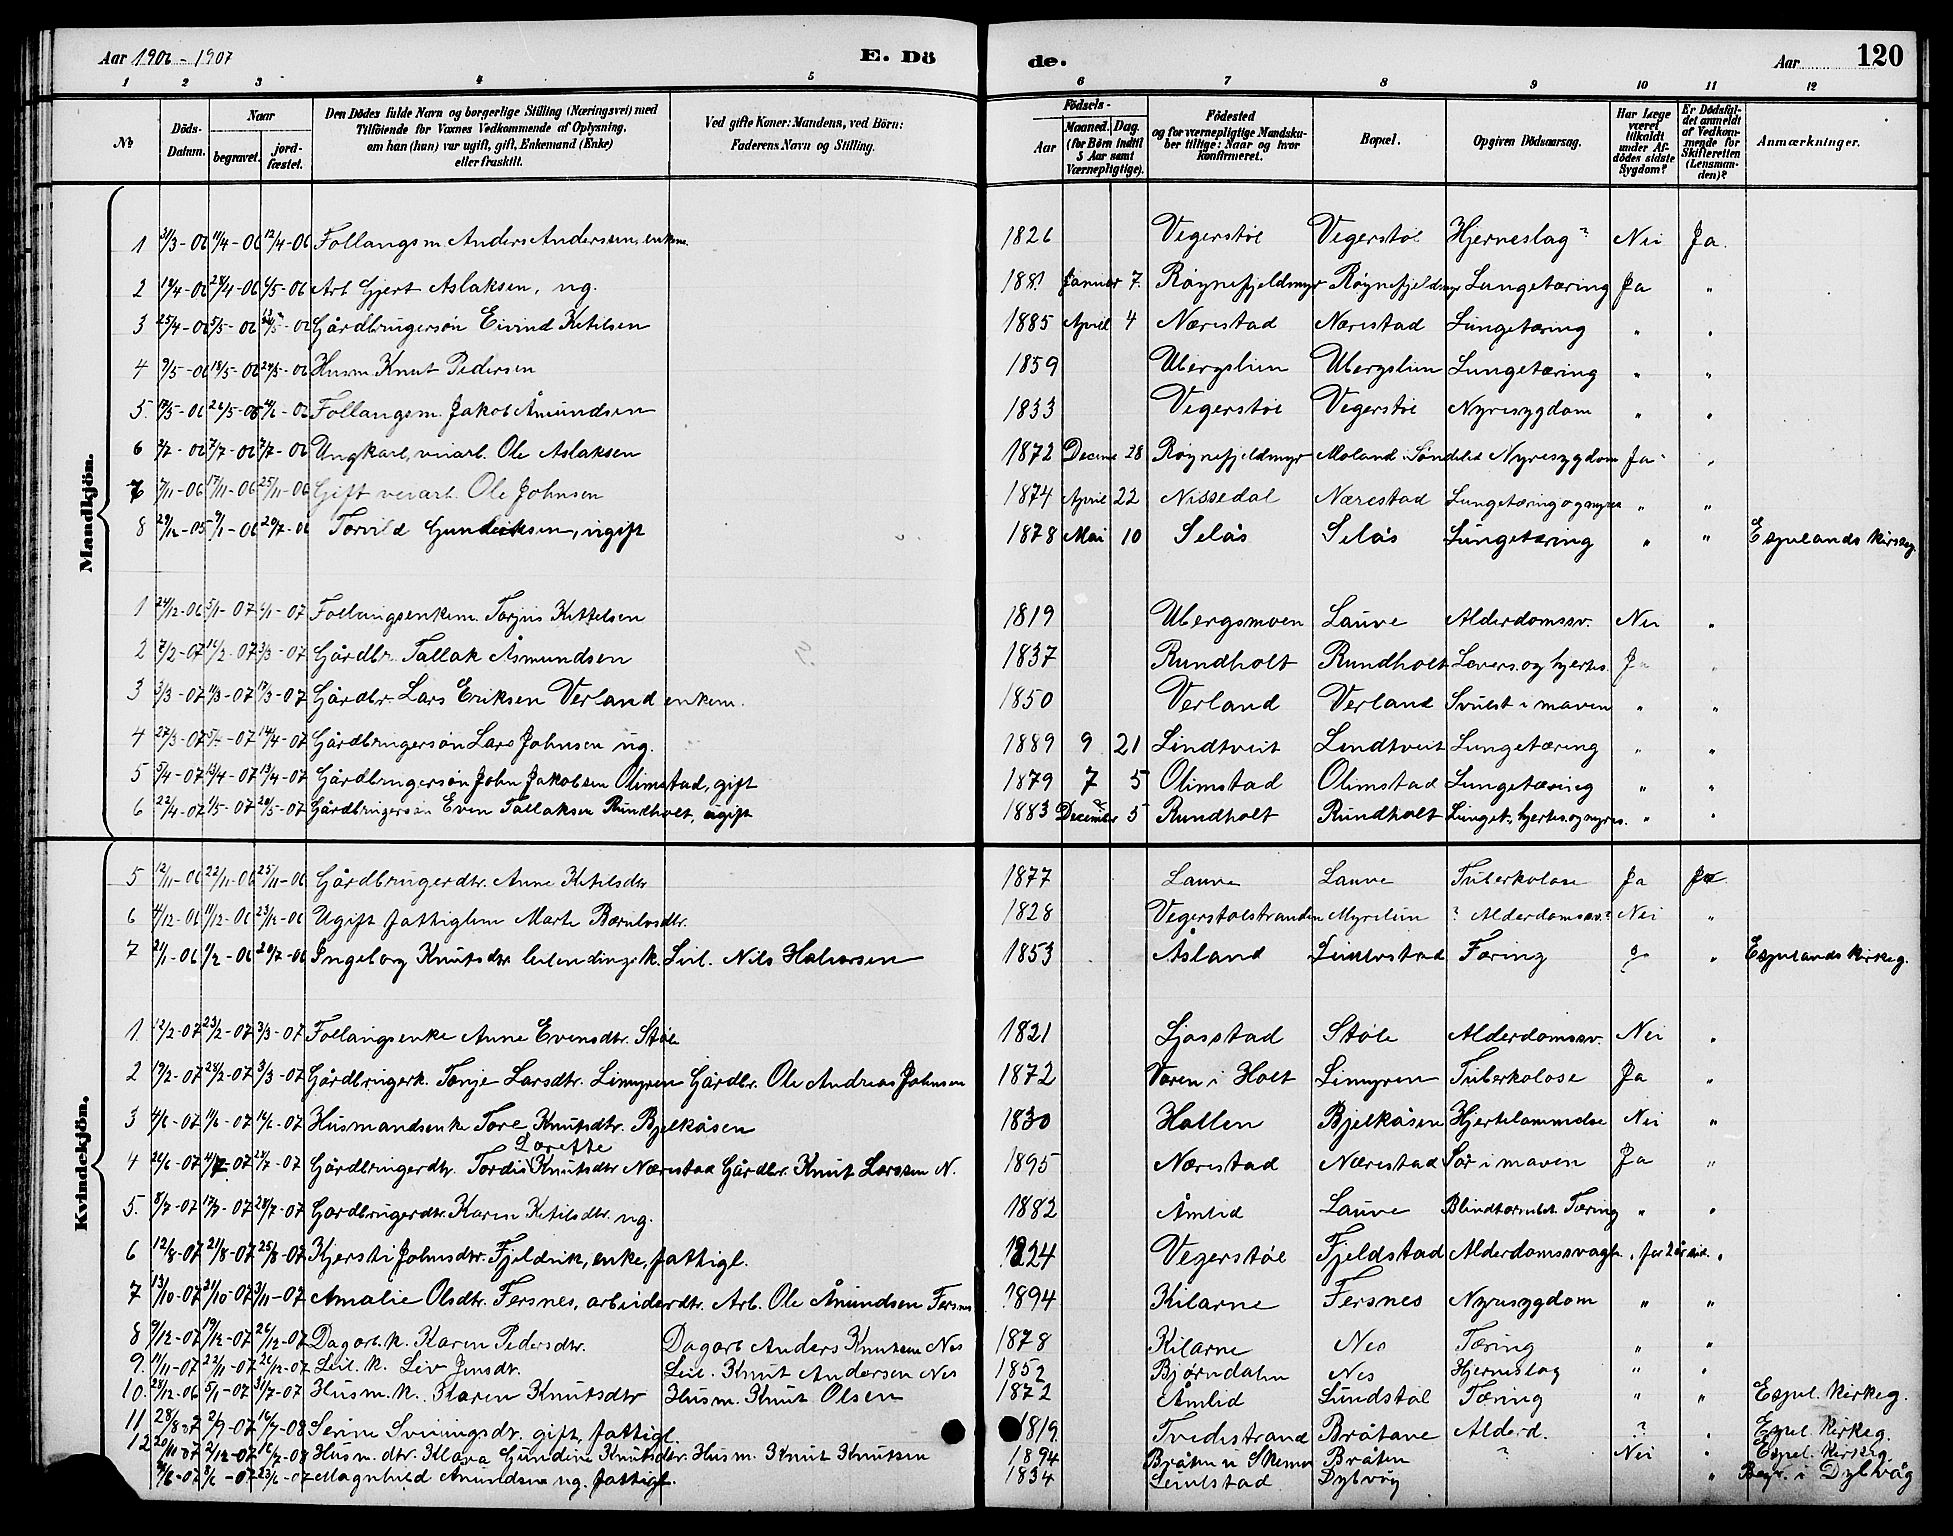 Aar 1906 - 1907
E. Dö
de.
Aar
120
1 2 3 4 5 6 7 8 9 10 11 12
№
Döds-Datum.
Naar begravet. jordfæstet.
Den Dödes fulde Navn og borgerlige Stilling (Næringsvei) med Tilföiende for Voxnes Vedkommende af Oplysning, om han (hun) var ugift, gift, Enkemand (Enke) eller fraskilt.
Ved gifte Koner: Mandens, ved Börn: Faderens Navn og Stilling.
Födsels- Aar Maaned. Dag. (for Børn indtil 5 Aar samt Værnepligtige).
Födested og for værnepligtige Mandskaber tillige: Naar og hvor konfirmeret.
Bopæl.
Opgiven Dödsaarsag.
Har Læge været tilkaldt under Afdödes sidste Sygdom?
Er Dödsfaldet anmeldt af Vedkommende for Skifteretten (Lensmanden)?
Anmærkninger.
Mandkjön.
1 31/3-06 11/4-06 12/4-06 Follaugsm. Anders Andersen, enkem. 1826 Vegerstøl Vegerstøl Hjerneslag? Nei Ja.
2 18/4-06 28/4-06 6/5-06 Arb. Gjert Aslaksen, ug. 1881 Januar 7. Røynefjeldmyr Røynefjeldmyr Lungetæring Ja "
3 25/4-06 5/5-06 13/5-06 Gårdbrugersøn Eivind Ketilsen 1885 April 4 Nærestad Nærestad Lungetæring " "
4 9/5-06 18/5-06 24/5-06 Husm. Knut Pedersen 1859 Ubergslien Ubergslien Lungetæring " "
5. 17/5-06 26/5-06 4/6-06 Follaugsm. Jakob Åmundsen 1833 Vegerstøl Vegerstøl Nyresygdom " "
6 2/7-06 7/7-06 7/7-06 Ungkarl, veiarb. Ole Aslaksen 1872 Decemb 28 Røynefjeldmyr Moland i Søndeled Nyresygdom Ja "
7 7/11-06 17/11-06 25/11-06 Gift veiarb. Ole Johnsen 1874 April 22 Nissedal Nærestad Lungetæring og nyres " "
8 29/12-05 9/1-06 20/7-06 Torvild Gunderksen, ugift 1878 Mai 10 Selås Selås Lungetæring " " Espelands kirkeg.
1 24/12-06 5/1-07 6/1-07 Follaugsenkem. Torjus Kettelsen 1819 Ubergsmoen Lauve Alderdomssv. Nei "
2 7/2-07 16/2-07 3/3-07 Gårdbr. Tallak Åsmundsen 1837 Rundholt Rundholt Levers. og hjertes. Ja "
3 3/3-07 11/3-07 17/3-07 Gårdbr. Lars Eriksen Verland enkem. 1850 Verland Verland Svulst i maven " "
4 27/3-07 5/4-07 14/4-07 Gårdbrugersøn Lars Johnsen ug. 1889 9 21 Lindtveit Lindtveit Lungetæring " "
5 5/4-07 13/4-07 13/4-07 Gårdbrugersøn John Jakobsen Olimstad, gift 1879 7 5 Olimstad Olimstad Lungetæring " "
6 22/4-07 1/5-07 20/5-07 Gårdbrugersøn Even Tallaksen Rundholt, ugift 1883 December 5 Rundholt Rundholt Lunget., hjertes. og nyres. " "
Kvindekjön.
5 12/11-06 22/11-06 25/11-06 Gårdbrugerdtr. Anne Ketilsdtr 1877 Lauve Lauve Tuberkolose Ja Ja.
6 4/12-06 11/12-06 23/12-06 Ugift fattiglem Marte Bærulvsdtr. 1828 Vegerstølstranden Myrelien ? Alderdomssv.? Nei "
7 24/1-06 1/2-06 20/7-06 Ingeborg Knutsdtr leilendingsk. Leil. Nils Halvorsen 1853 Åsland Lindtstad Tæring ? " Espelands kirkeg.
1 12/2-07 23/2-07 3/3-07 Follaugsenke Anne Evensdtr. Støle 1821 Ljosstad Støle Alderdomssv. Nei "
2 19/2-07 28/2-07 3/3-07 Gårdbrugerk. Tonje Larsdtr. Limyren Gårdbr. Ole Andreas Johnsen 1872 Voren i Holt Limyren Tuberkolose Ja "
3 4/6-07 11/6-07 16/6-07 Husmandsenke Tore Knutsdtr. Bjelkåsen 1830 Hallen Bjelkåsen Hjertelammelse Nei "
4 26/6-07 4/7-07 28/7-07 Gårdbrugerdtr. Tordis Lorette Knutsdtr Nærestad Gårdbr. Knut Larssen N. 1895 Nærestad Nærestad Sår i maven Ja "
5. 8/7-07 17/7-07 28/7-07 Gardbrugerdtr. Karen Ketilsdtr. ug. 1882 Åmlid Lauve Blindtarmbet. Tæring " "
6 12/8-07 21/8-07 25/8-07 Kjersti Johnsdtr. Fjeldvik, enke, fattigl. 1824 Vegerstøl Fjeldstad Alderdomssvagh. " for 2 år sid. "
7 13/10-07 21/10-07 3/11-07 Amalie Olsdtr. Fersnes, arbeiderdtr. Arb. Ole Åmundsen Fersnes 1894 Kilarne Fersnes Nyresygdom " "
8 9/12-07 19/12-07 26/12-07 Dagarb. k. Karen Pedersdtr. Dagarb Anders Knutsen Nes 1878 Kilarne Nes Tæring " "
9 11/11-07 22/11-07 26/12-07 Leil. k. Liv Jensdtr. Leil. Knut Andersen Nes 1852 Bjørndalen Nes Hjerneslag " "
10 24/12-06 5/1-07 31/7-07 Husm. k. Karen Knutsdtr Husm. Knut Olsen 1872 Åmlid Lundstøl Tæring " " Espel. kirkeg.
11 28/8 07 2/9-07 16/7-08 Serine Sveiningsdtr. gift, fattigl. 1819 Tvedestrand Bråtane Alderd. ? " Espel. kirkeg.
12 20/11-07 2/12-07 16/7-08 Husm. dtr. Klara Gundine Knutsdtr. Husm. Knut Knutsen 1894 Bråten u Skemo Bråten ? Nei " Espel. kirkeg.
8/6-07 23/6-07 Magnhild Amundsen ug. fattigl. 1834 Dybvåg " Begr. i Dybvåg